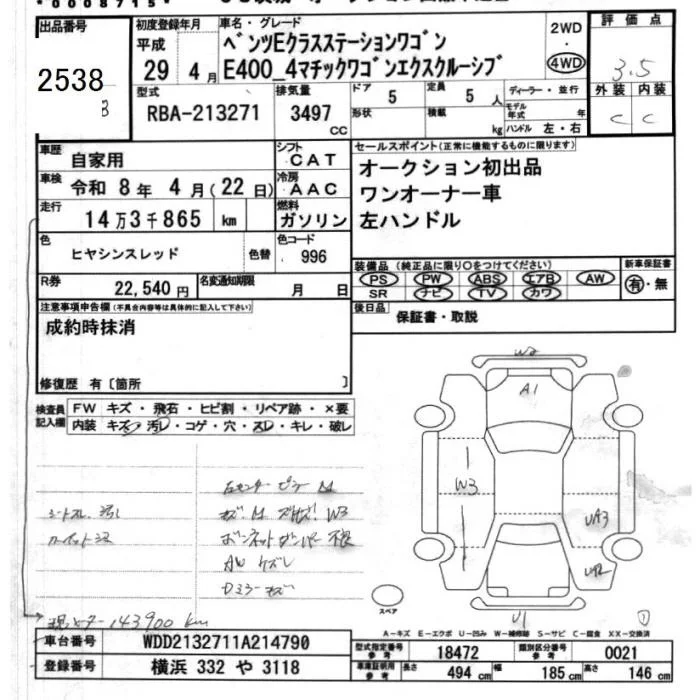 *0008715*
出品番号
2538
B
初度登録年月
平成
29 4 月
車名・グレード
ベンツEクラスステーションワゴン
E400_4マチックワゴンエクスクルーシブ
2WD
・
4WD
評価点
3.5
外装 内装
C C
型式
RBA-213271
排気量
3497
CC
ドア
5
定員
5 人
形状
積載
kg
ディーラー・並行
モデル年式 年
ハンドル 左・右
車歴
自家用
シフト
CAT
車検
令和 8 年 4 月 (22 日)
冷房
AAC
走行
14万3千865 km
燃料
ガソリン
色
ヒヤシンスレッド
色替
色コード
996
R券
22,540 円
名変通知期限
月 日
セールスポイント(正常に機能するものに限ります)
オークション初出品
ワンオーナー車
左ハンドル
装備品(純正品に限り〇をつけてください)
PS PW ABS エアB AW
SR ナビ TV カワ
新車保証書
有・無
後日品
保証書・取説
注意事項申告欄(不具合内容等は具体的に記入して下さい)
成約時抹消
修復歴 有〔箇所 〕
検査員記入欄
FW キズ・飛石・ヒビ割・リペア跡・×要
内装 キズ・汚レ・コゲ・穴・スレ・キレ・破レ
シートスレ、汚レ
左センターピラーM
W3
AWキズレ
Dミラーキズ
現メーター143900km
W2
A1
W3
UA3
UA2
U1
スペア
A-キズ E-エクボ U-凹み W-補修跡 S-サビ C-腐食 XX-交換済
車台番号
WDD2132711A214790
登録番号
横浜 332 や 3118
型式指定番号
参考
18472
類別区分番号
参考
0021
車庫証明用
参考
長さ 494 cm
幅 185 cm
高さ 146 cm